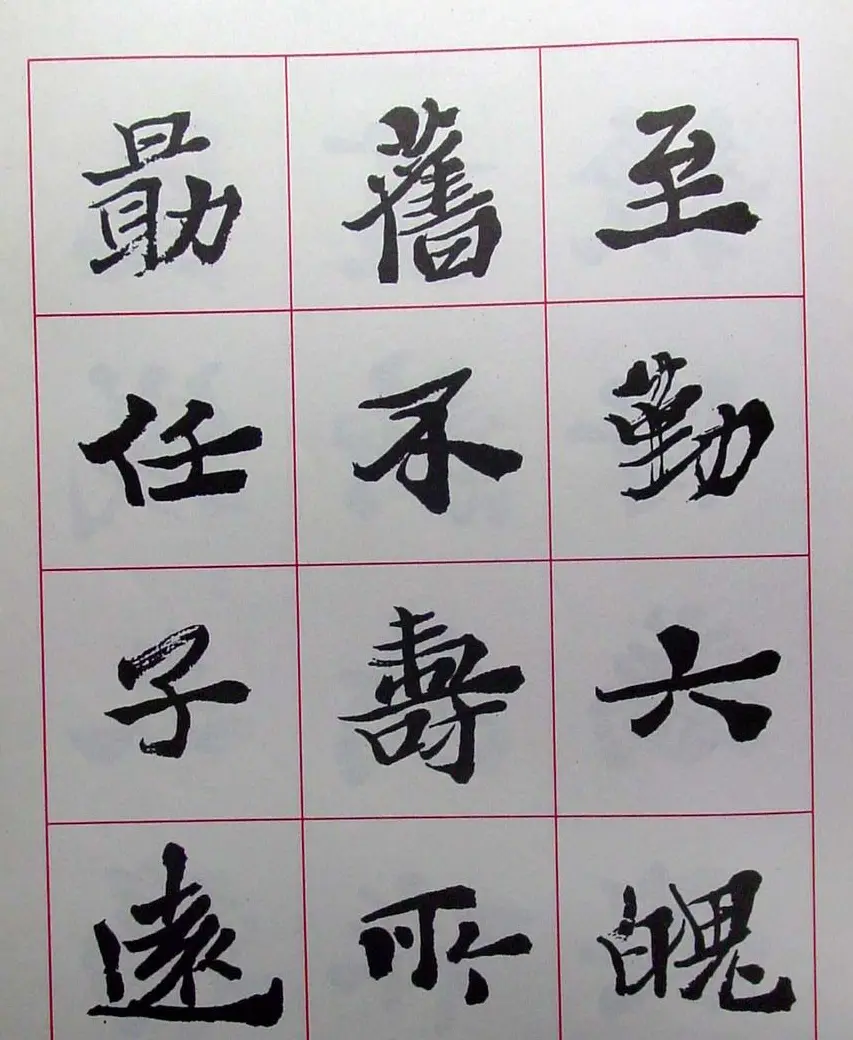 至勤六魄
舊不壽所
勗任子遠